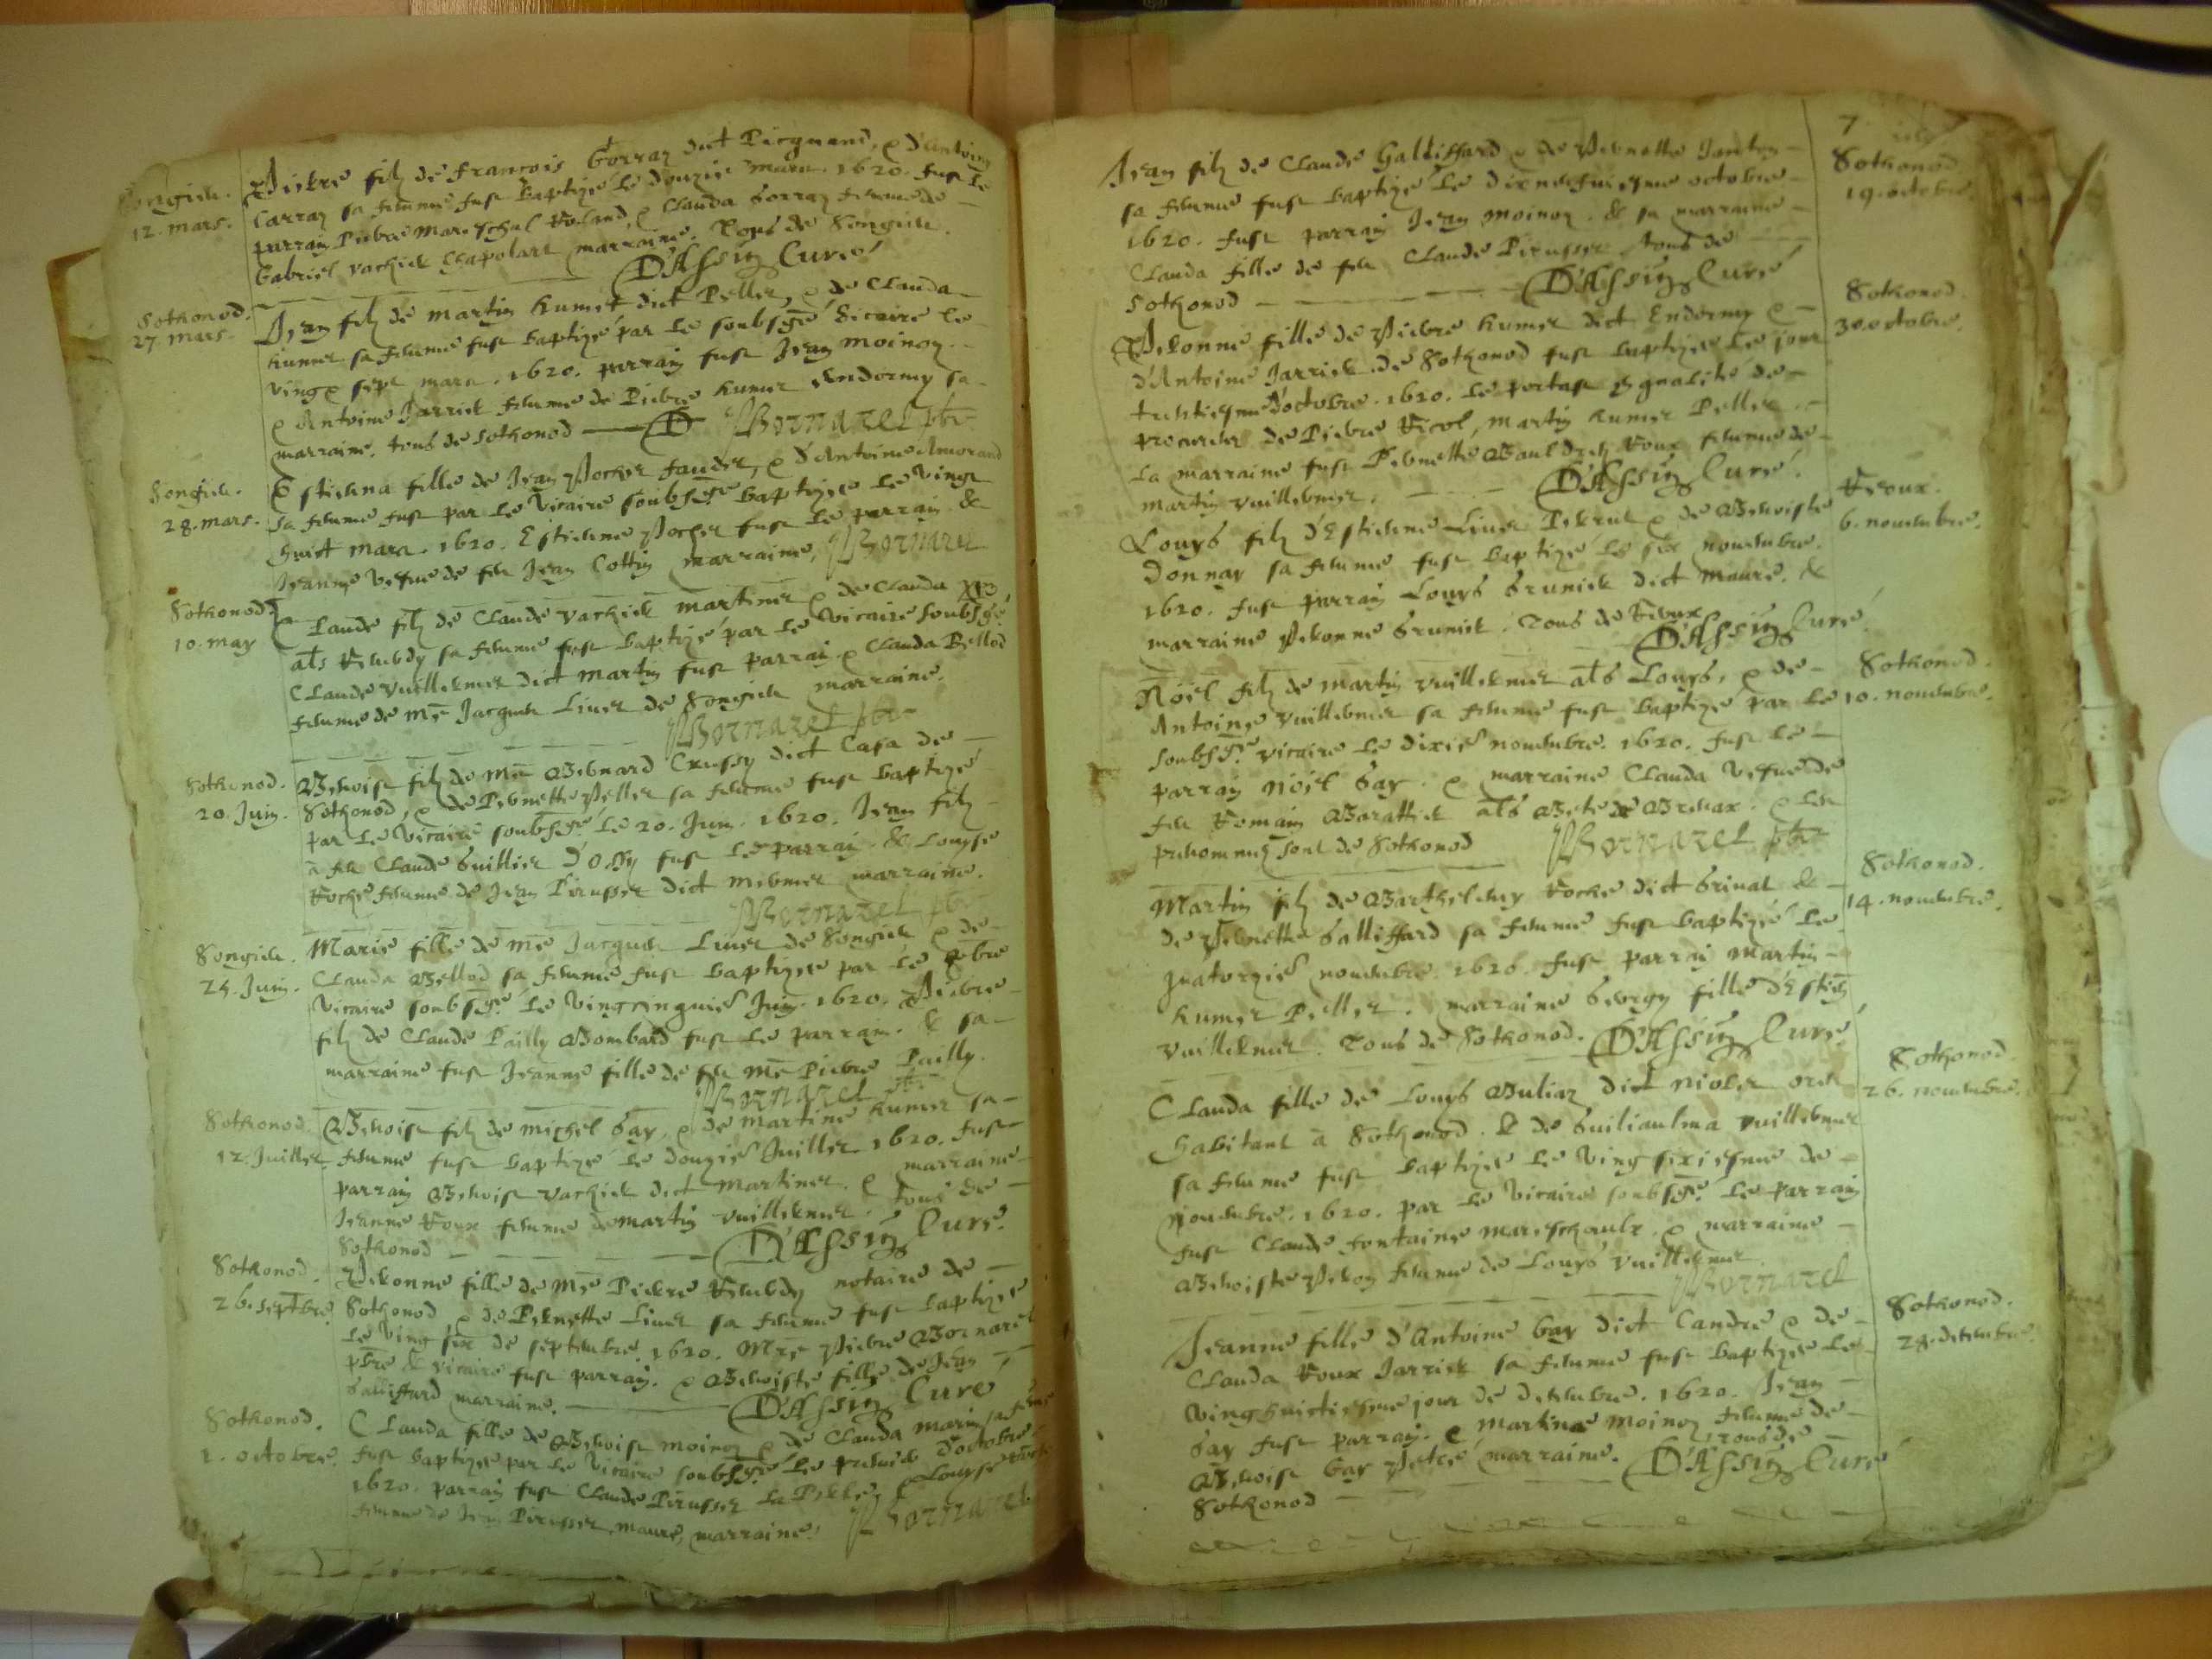 Songieu.
12. mars.
Pierre filz de francois Gorraz dict Picquand, & d'Antoine
Carraz sa femme fust baptizé le douzie mars. 1620. fust le
parrain Pierre Mareschal Roland, & Clauda Gorraz femme de
Gabriel vachier Chapolart marraine. Tous de Songieu.
D'Assin Curé
Sothonod.
27 mars.
Jean filz de martin humet dict Peller, & de Clauda
humet sa femme fust baptizé par le soubsgé vicaire le
vingt sept mars. 1620. parrain fust Jean moinoz
& Antoine Jarrier femme de Pierre humet Andormy sa
marraine. tous de Sothonod
Bornarel pbr
Songieu.
28. mars.
Estiena fille de Jean Pochet fauder, & d'Antoine Amorand
sa femme fust par le vicaire soubsgé baptizee le vingt
huict mars. 1620. Estienne Pochet fust le parrain &
Jeanne vefue de feu Jean Cottin marraine, Bornarel
Sothonod.
10. may
Claude filz de Claude vachier martinet & de Clauda
als Reuerdy sa femme fust baptizé par le vicaire soubsgé
Claude vuillermet dict martin fust parrain & Clauda Bellod
femme de me Jacques Liuet de Songieu marraine.
Bornarel pbr
Sothonod.
20. Juin.
Benoist filz de me Bernard Crussy dict Casa de
Sothonod, & de Pernette Peller sa femme fust baptizé
par le vicaire soubsgé le 20. Juin. 1620. Jean filz
à feu Claude Guillier d'Ossy fust le parrain & Louyse
Roche femme de Jean Perusset dict mermet marraine.
Bornarel pbr
Songieu.
25. Juin.
Marie fille de me Jacques Liuet de Songieu & de
Clauda Bellod sa femme fust baptizee par le pbre
vicaire soubsgé le vingtcinquie Juin. 1620. Pierre
filz de Claude Pailly Bombard fust le parrain. & sa
marraine fust Jeanne fille de feu me Pierre Pailly.
Bornarel pbr
Sothonod.
12. Juillet
Benoist filz de michel Gay, & de martine humet sa
femme fust baptizé le douzie Juillet 1620. fust
parrain Benoist vachier dict martinet. & marraine
Jeanne Roux femme de martin vuillermet. tous de
Sothonod
D'Assin Curé.
Sothonod.
26. septbre.
Peronne fille de me Pierre Reuerdy notaire de
Sothonod & de Pernette Liuet sa femme fust baptizee
le vingt six de septembre. 1620. Mre Pierre Bornarel
pbre & vicaire fust parrain. & Benoiste fille de Jean
Galliffard marraine.
D'Assin Curé
Sothonod.
1. octobre.
Clauda fille de Benoist moinoz & de Clauda marin sa feme
fust baptizee par le vicaire soubsgé le premier d'octobre
1620. parrain fust Claude Perusset la Perle, & Louyse
femme de Jean Perusset maure, marraine.
Bornarel
7
Jean filz de Claude Galliffard & de Pernette Janten
sa femme fust baptizé le dixneufuiesme octobre
1620. fust parrain Jean moinoz. & sa marraine
Clauda fille de feu Claude Perusset tous de
Sothonod
D'Assin Curé
Sothonod
19. octobre.
Peronne fille de Pierre humet dict Endormy &
d'Antoine Jarrier de Sothonod fust baptizee le jour
trentiesme d'octobre. 1620. le portast en qualité de
procureur de Pierre Nicol, martin humet Peller.
La marraine fust Pernette Bauldren Roux femme de
martin vuillermet.
D'Assin Curé.
Sothonod.
30. octobre.
Louys filz d'Estienne Liuet Perrut & de Benoiste
Donnay sa femme fust baptizé le six nouembre.
1620. fust parrain Louys Brunier dict maure. &
marraine Peronne Brunier. Tous de Reoux
D'Assin Curé
Reoux.
6. nouembre.
Nöel filz de martin vuillermet als Louys, & de
Antoine vuillermet sa femme fust baptizé par le
soubsgé vicaire le dixie nouembre. 1620. fust le
parrain nöel Gay. & marraine Clauda vefue de
feu Romain Barattier als Bete de Brenaz. & les
prenommez sont de Sothonod
Bornarel pbr
Sothonod.
10. nouembre.
Martin filz de Barthelemy Roche dict Grinat &
de Pernette Galliffard sa femme fust baptizé le
quatorzie nouembre. 1620. fust parrain martin
humet Peller. marraine Georgy fille d'Estien
vuillermet. Tous de Sothonod.
D'Assin Curé
Sothonod.
14. nouembre.
Clauda fille de Louys Buliaz dict niolet ores
habitant à Sothonod. & de Guillaulma vuillermet
sa femme fust baptizee le vingt sixiesme de
nouembre. 1620. par le vicaire soubsgé le parrain
fust Claude fontaine mareschault. & marraine
Benoiste Peron femme de Louys vuillermet
Bornarel
Sothonod.
26. nouembre.
Jeanne fille d'Antoine Gay dict Candre & de
Clauda Roux Jarrier sa femme fust baptizee le
vingthuictiesme jour de decembre. 1620. Jean
Gay fust parrain. & martine moinoz femme de
Benoist Gay Petet marraine. tous de
Sothonod
D'Assin Curé
Sothonod.
28. decembre.